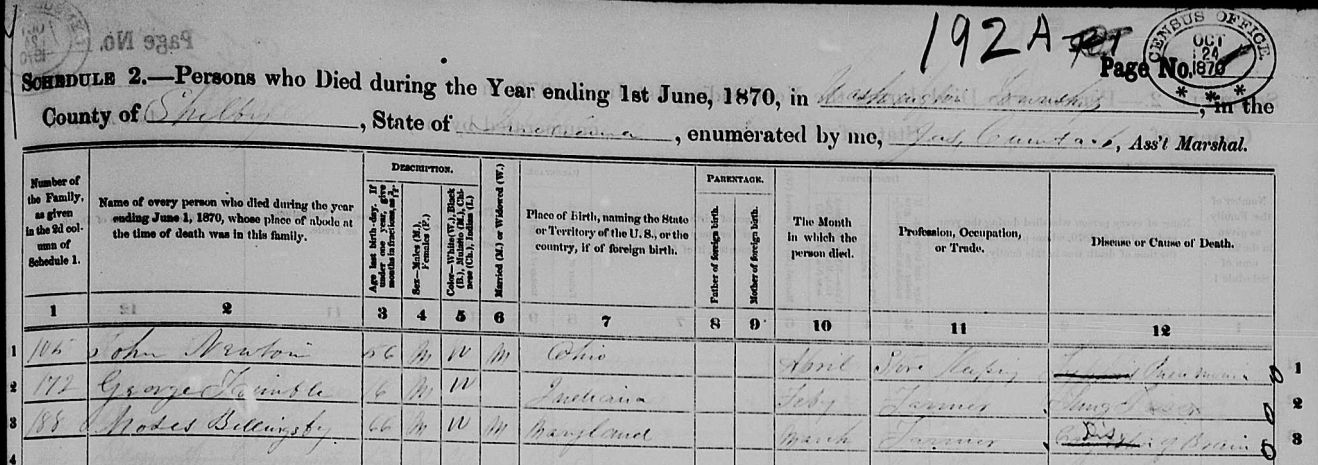 Page No.
192A
CENSUS OFFICE
OCT
24
1870
Page No.
SCHEDULE 2.—Persons who Died during the Year ending 1st June, 1870, in Washington Township, in the
County of Shelby, State of Indiana, enumerated by me, Ass't Marshal.
Number of the Family, as given in the 2d column of Schedule 1.
Name of every person who died during the year ending June 1, 1870, whose place of abode at the time of death was in this family.
DESCRIPTION.
Age last birth-day. If under one year, give months in fractions, as 3/12
Sex—Males (M.), Females (F.)
Color—White (W.), Black (B.), Mulatto (M.), Chinese (Ch.), Indian (I.)
Married (M.) or Widowed (W.)
Place of Birth, naming the State or Territory of the U. S., or the country, if of foreign birth.
PARENTAGE.
Father of foreign birth.
Mother of foreign birth.
The Month in which the person died.
Profession, Occupation, or Trade.
Disease or Cause of Death.
1 2 3 4 5 6 7 8 9 10 11 12
1 John Newton 56 M W M Ohio April Store Pneumonia 1
2 172 George 16 M W Indiana Feby Farmer 2
3 188 Moses Billingsby 66 M W M Maryland March Farmer Dis of Brain 3
4